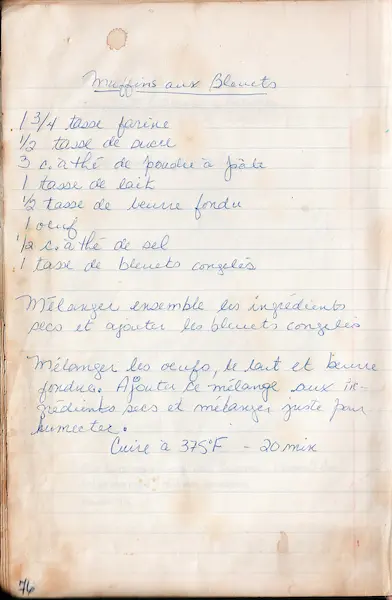 Muffins aux Bleuets
1 3/4 tasse farine
1/2 tasse de sucre
3 c. à thé de poudre à pâte
1 tasse de lait
1/2 tasse de beurre fondu
1 oeuf
1/2 c. à thé de sel
1 tasse de bleuets congelés
Mélanger ensemble les ingrédients
secs et ajouter les bleuets congelés
Mélanger les oeufs, le lait et beurre
fondue. Ajouter ce mélange aux in-
grédients secs et mélanger juste pour
humecter.
Cuire à 375°F - 20 min
76